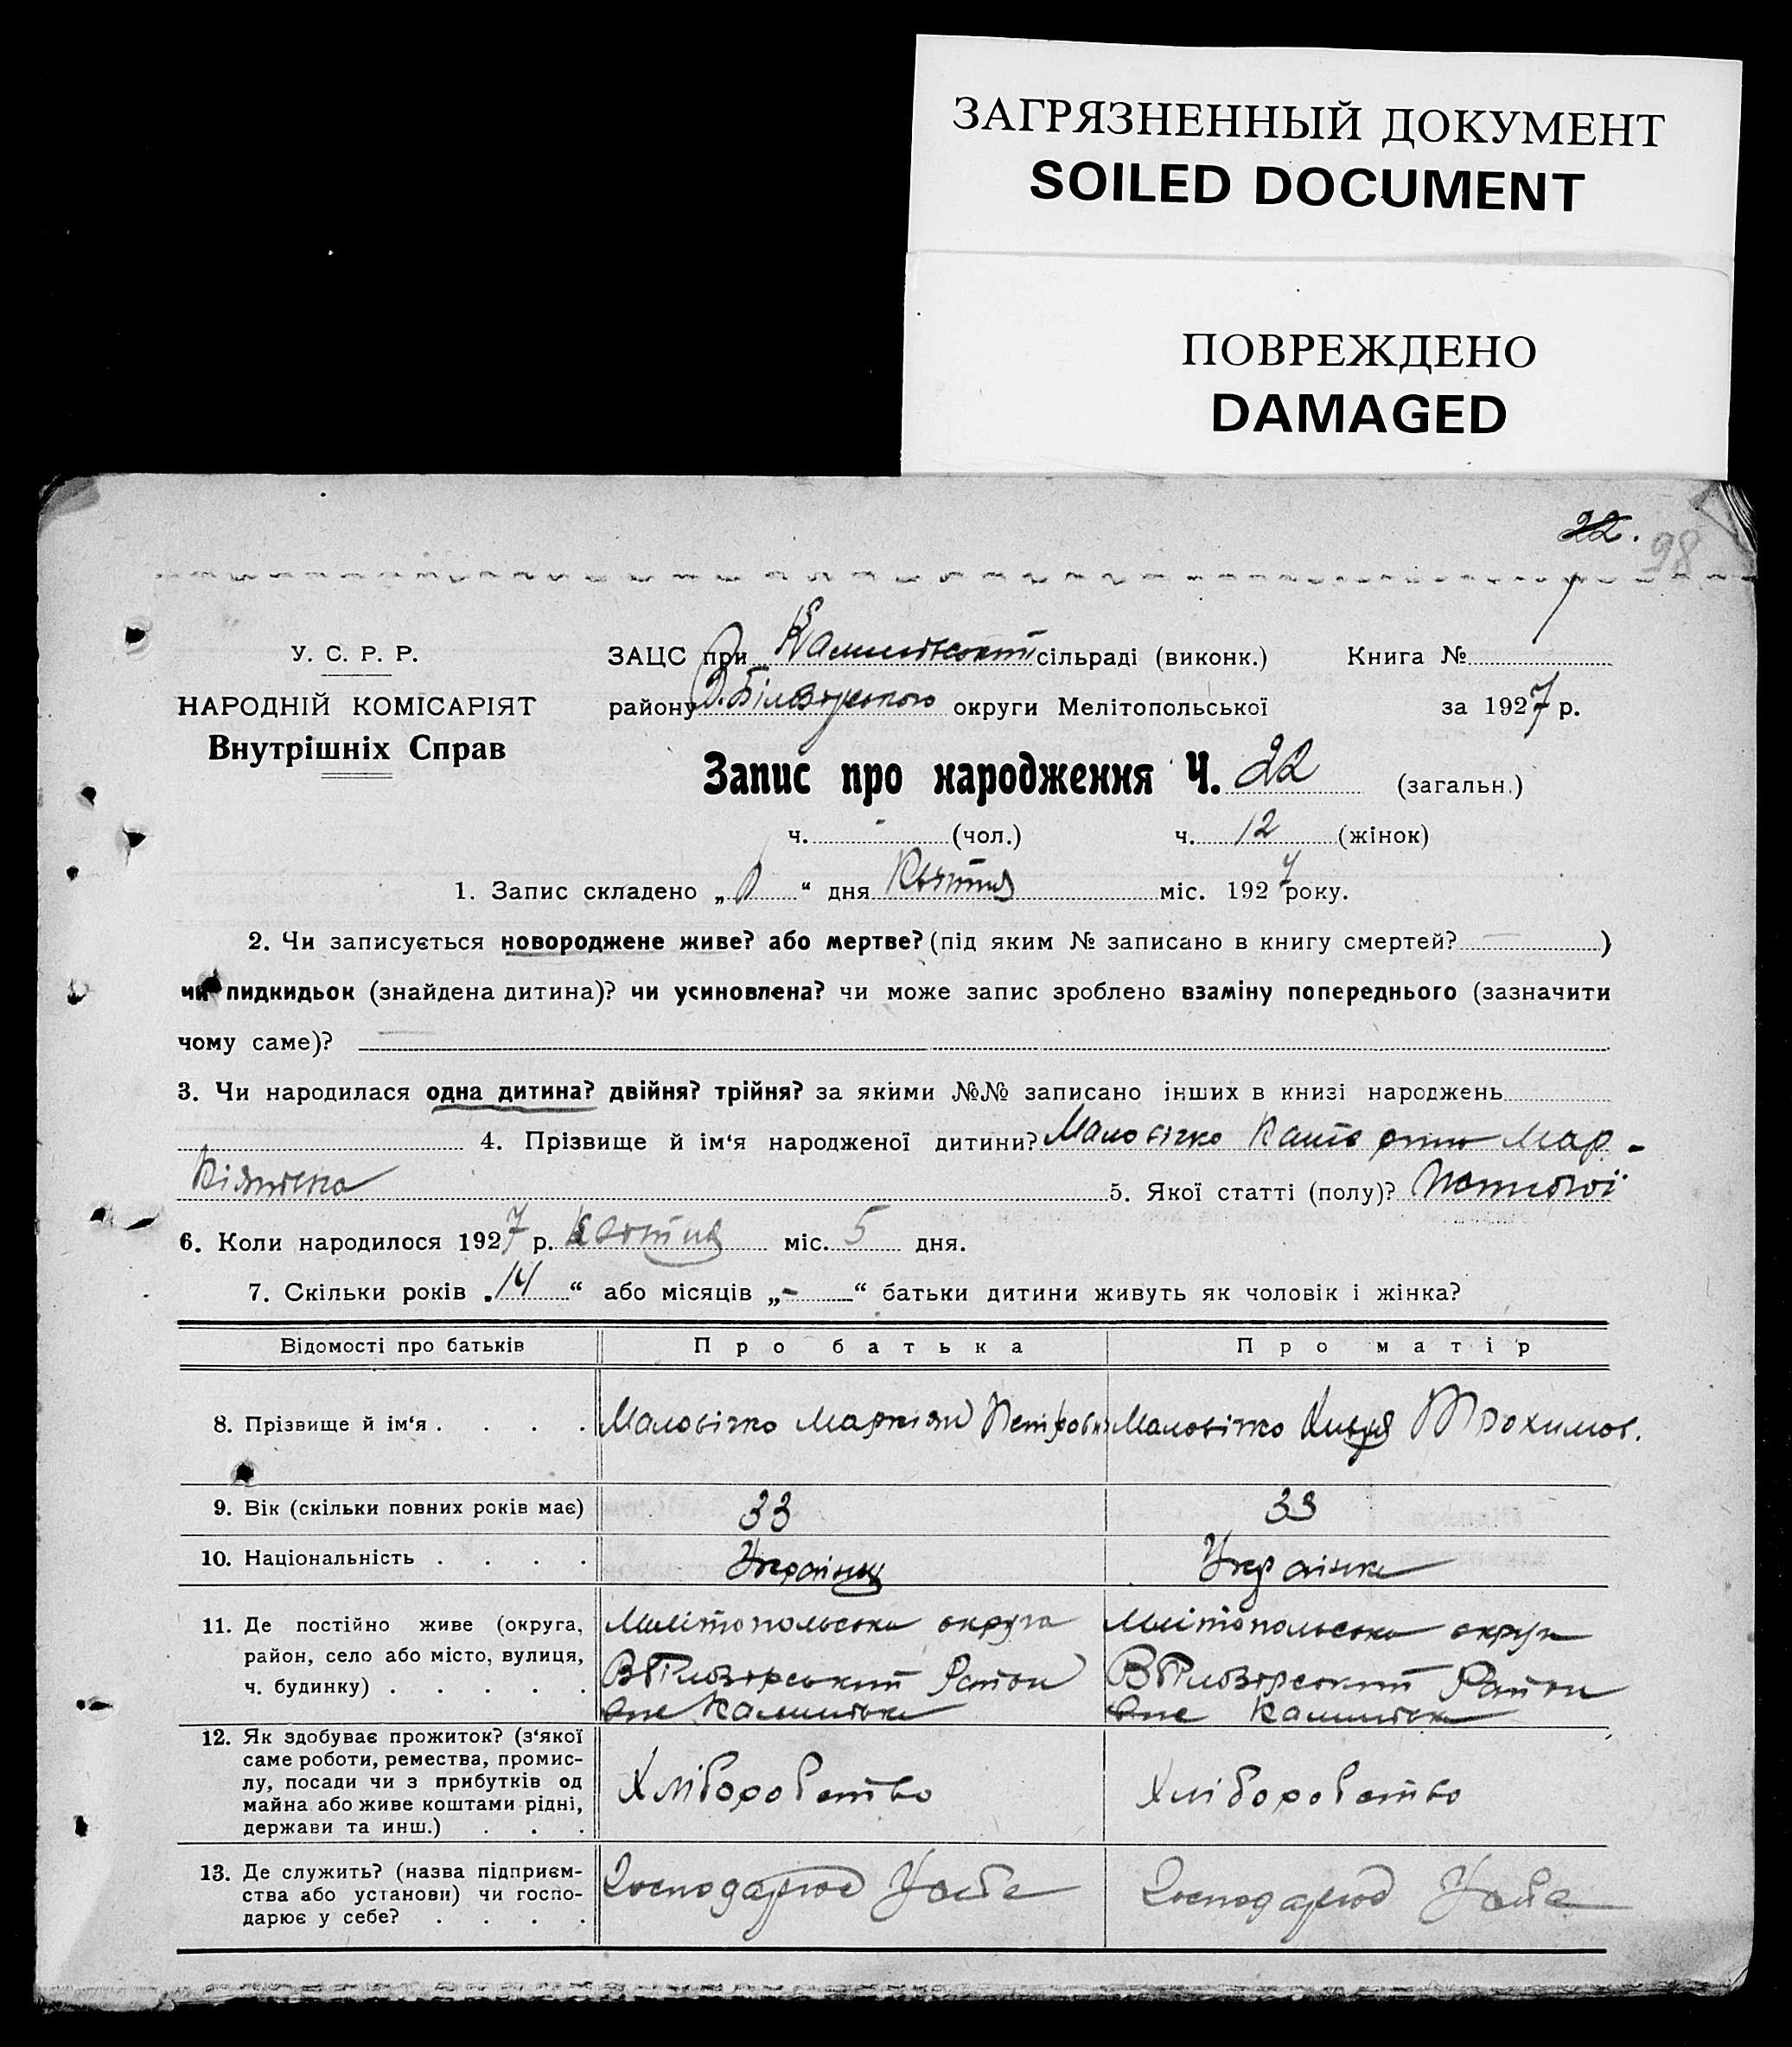 ЗАГРЯЗНЕННЫЙ ДОКУМЕНТ
SOILED DOCUMENT
ПОВРЕЖДЕНО
DAMAGED
22.
98
У. С. Р. Р.
НАРОДНІЙ КОМІСАРІЯТ
Внутрішніх Справ
ЗАЦС при сільраді (виконк.) Книга № 1
району В.Білозерського округи Мелітопольської за 1927 р.
Запис про народження Ч. 22 (загальн.)
ч. - (чол.) ч. 12 (жінок)
1. Запис складено „ “ дня Квітня міс. 1927 року.
2. Чи записується новороджене живе? або мертве? (під яким № записано в книгу смертей? — )
чи пидкидьок (знайдена дитина)? чи усиновлена? чи може запис зроблено взаміну попереднього (зазначити
чому саме)? —
3. Чи народилася одна дитина? двійня? трійня? за якими №№ записано інших в книзі народжень
4. Прізвище й ім‘я народженої дитини? Маловічко Мар-
кіянівна 5. Якої статті (полу)?
6. Коли народилося 1927 р. Квітня міс. 5 дня.
7. Скільки років „14“ або місяців „-“ батьки дитини живуть як чоловік і жінка?
Відомості про батьків Про батька Про матір
8. Прізвище й ім‘я . . . . Маловічко Маркіян Петрович Маловічко Трохимов.
9. Вік (скільки повних років має) 33 33
10. Національність . . . . Українец Українка
11. Де постійно живе (округа, район, село або місто, вулиця, ч. будинку) . . . . .
Мелітопольська округа Мелітопольська округа
ВБілозерський Район ВБілозерський Район
12. Як здобуває прожиток? (з‘якої
саме роботи, ремества, промис-
лу, посади чи з прибутків од
майна або живе коштами рідні,
держави та инш.) . . .
Хліборобство Хліборобство
13. Де служить? (назва підприєм-
ства або установи) чи госпо-
дарює у себе? . . . .
Господарює Усебе Господарює Усебе